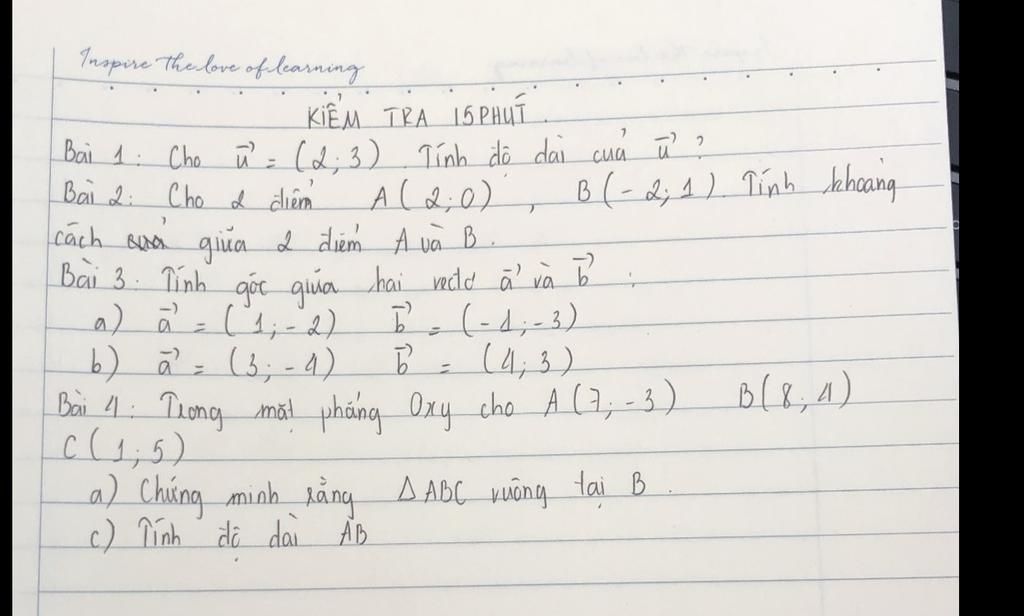 Inspire the love of learning
KIỂM TRA 15PHÚT.
Bài 1: Cho u⃗ = (2; 3). Tính độ dài của u⃗ ?
Bài 2: Cho 2 điểm A(2;0), B(-2;1). Tính khoảng
cách giữa 2 điểm A và B.
Bài 3: Tính góc giữa hai vectơ a⃗ và b⃗ :
a) a⃗ = (1;-2) b⃗ = (-1;-3)
b) a⃗ = (3;-4) b⃗ = (4;3)
Bài 4: Trong mặt phẳng Oxy cho A(7;-3) B(8;4)
C(1;5)
a) Chứng minh rằng △ABC vuông tại B.
c) Tính độ dài AB